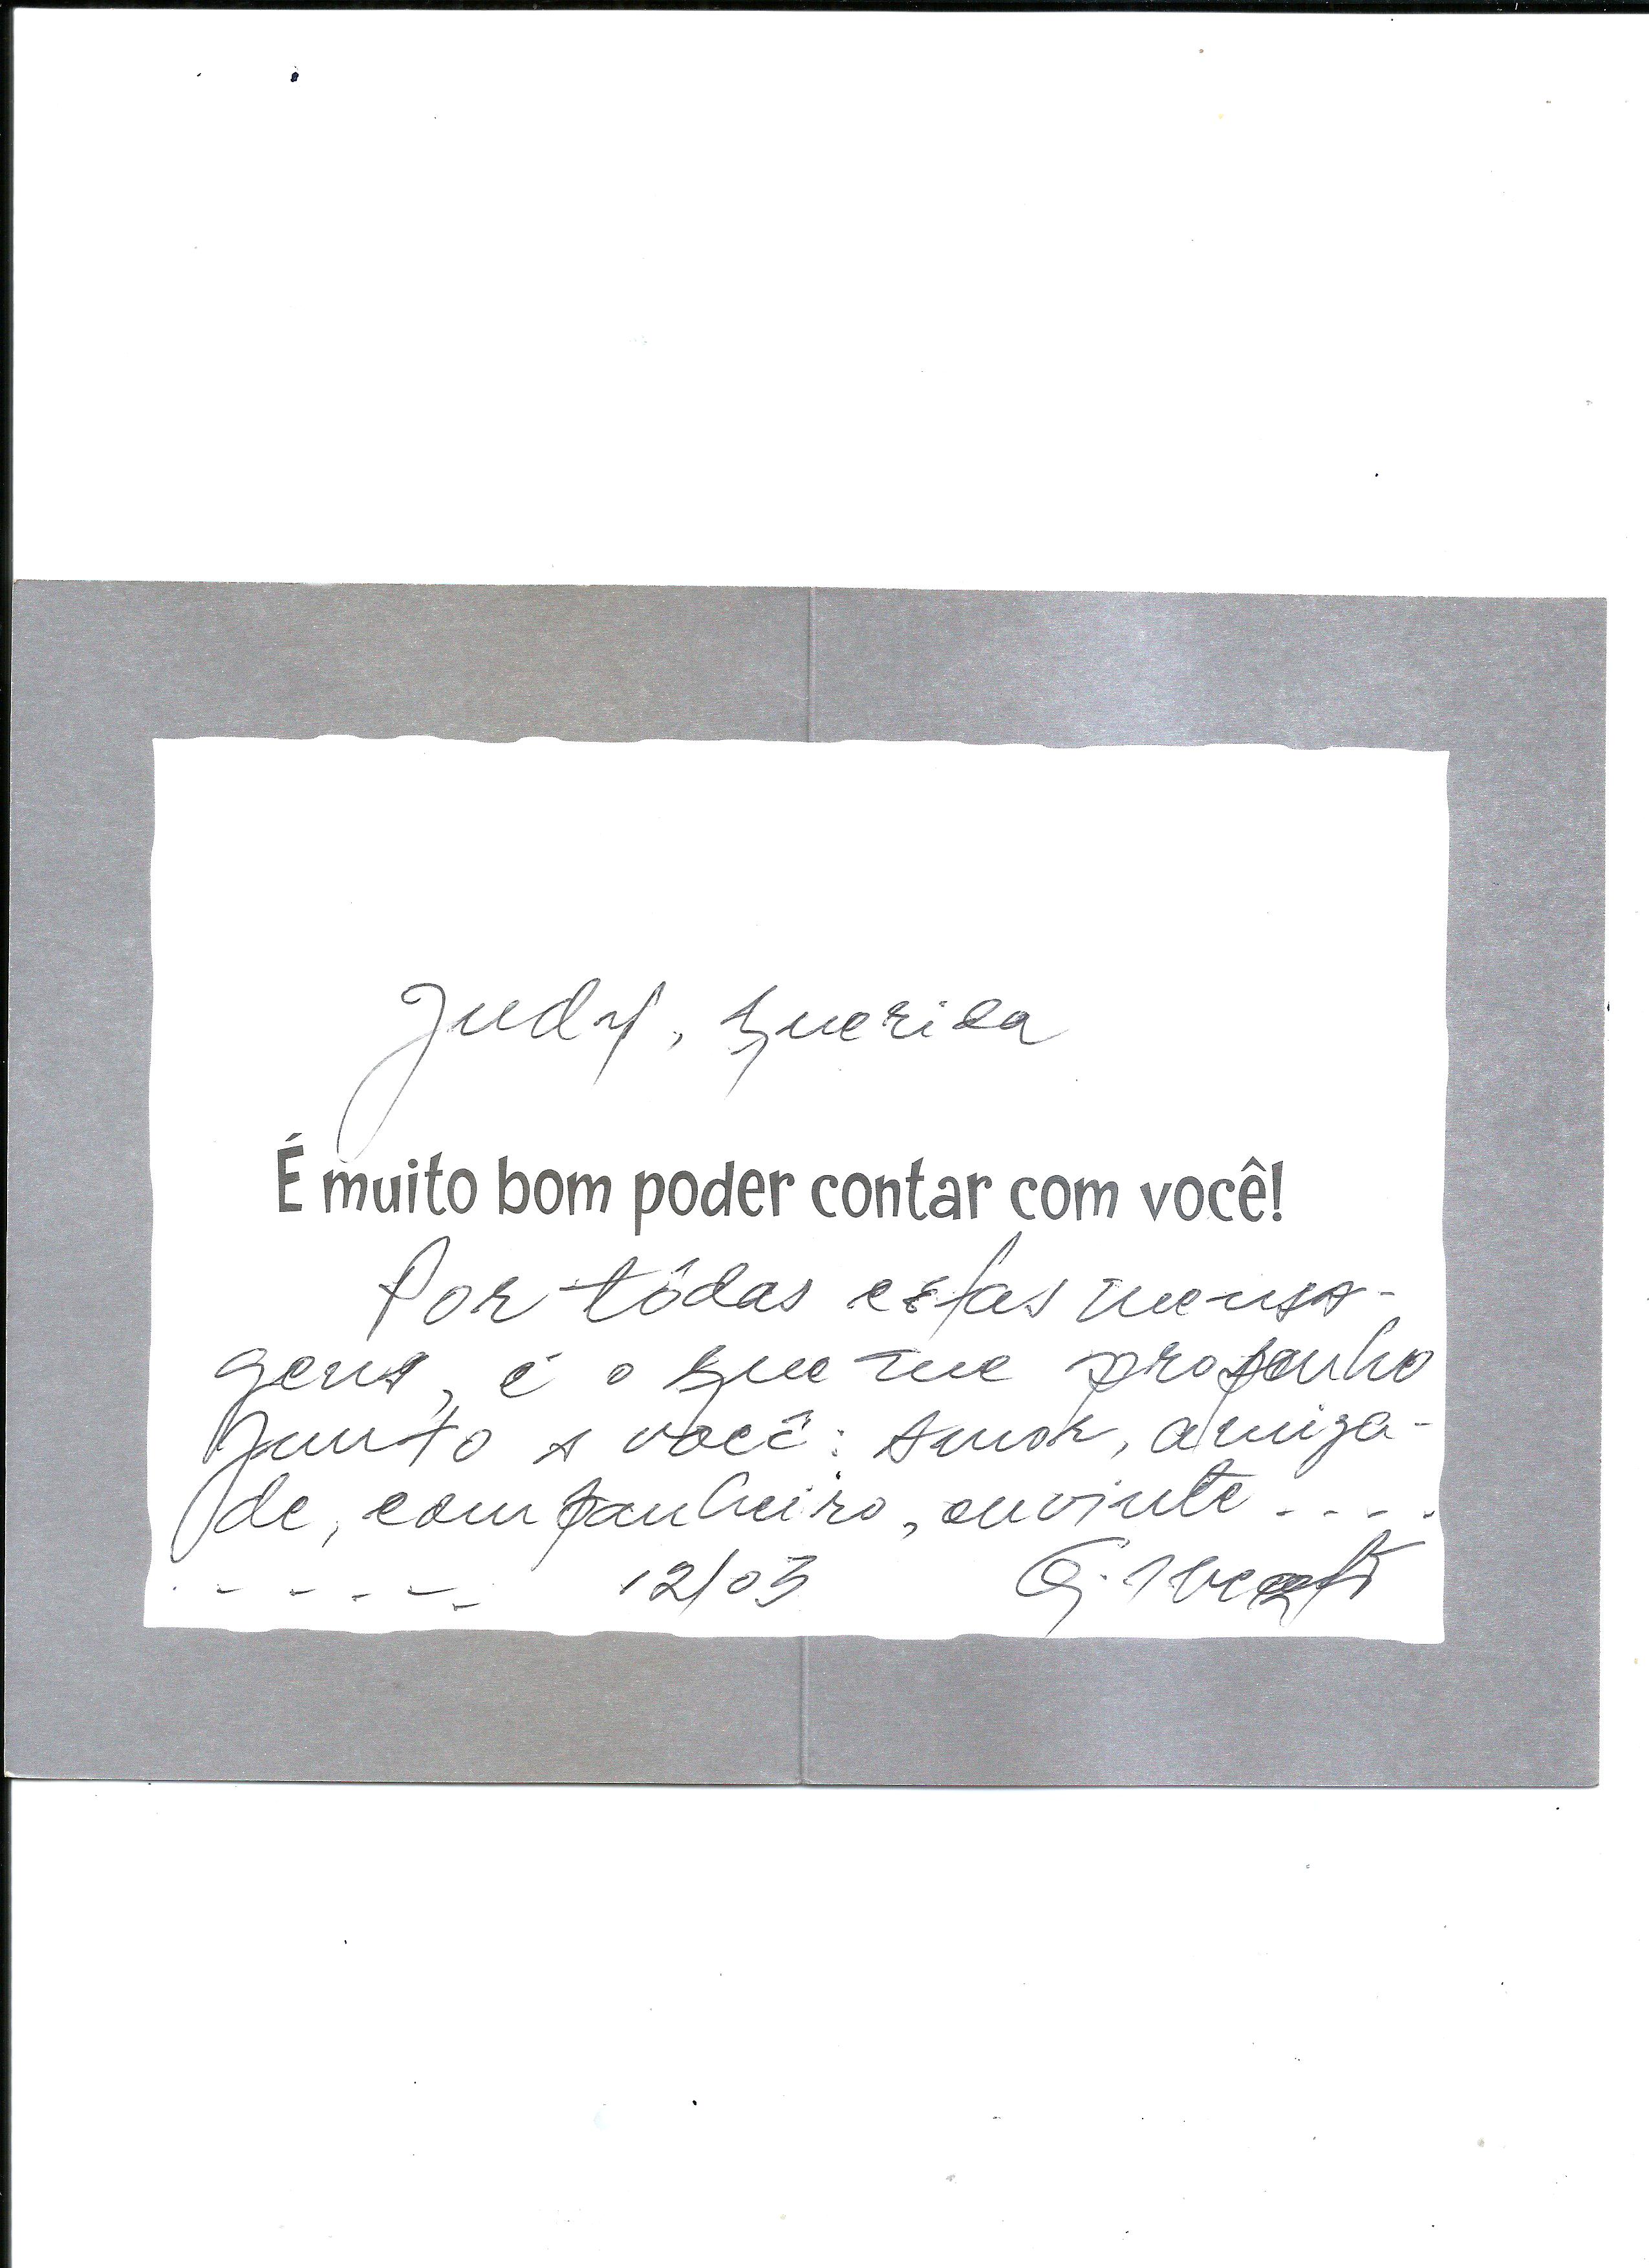 Judy, querida
É muito bom poder contar com você!
Por tôdas estas mensa-
gens, é o que me proponho
junto a você: amor, amiza-
de, companheiro, ouvinte ....
- - - - - 12/03 G.